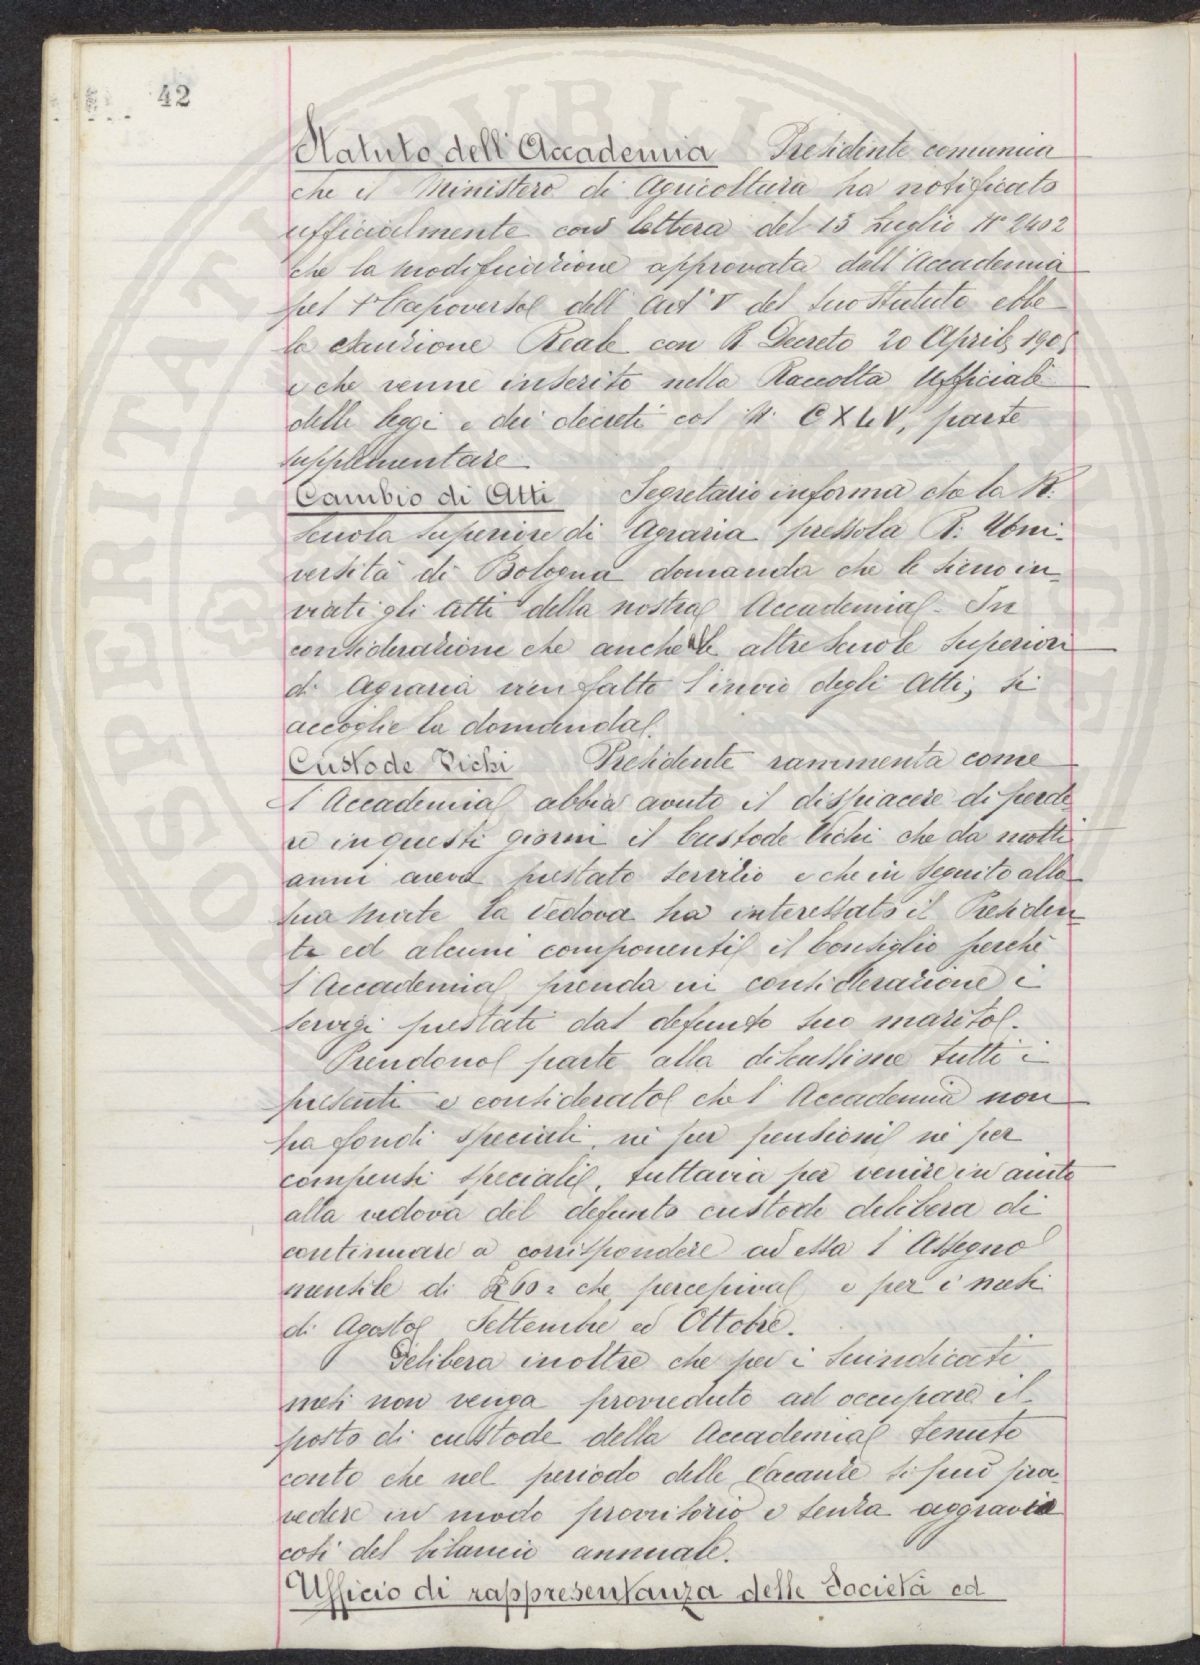 42
Statuto dell'Accademia Presidente comunica
che il Ministero di Agricoltura ha notificato
ufficialmente con lettera del 13 Luglio N° 2402
che la modificazione approvata dall'Accademia
pel 1° Capoverso dell'Art° V del suo Statuto ebbe
la sanzione Reale con R Decreto 20 April
e che venne inserito nella Raccolta Ufficiale
delle leggi e dei decreti col N. CXLV, parte
supplementare
Cambio di Atti Segretario informa che la R.
Scuola Superiore di Agraria presso la R. Uni-
versità di Bologna domanda che le sieno in-
viati gli Atti della nostra Accademia - In
considerazione che anche le altre Scuole Superiori
di Agraria vien fatto l'invio degli Atti, si
accoglie la domanda.
Custode Vichi Presidente rammenta come
l'Accademia abbia avuto il dispiacere di perde-
re in questi giorni il Custode Vichi che da molti
anni aveva prestato servizio e che in seguito alla
sua morte la Vedova ha interessato il Presiden-
te ed alcuni componenti il Consiglio perchè
l'Accademia prenda in considerazione i
servigi prestati dal defunto suo marito.
Prendono parte alla discussione tutti i
presenti e considerato che l'Accademia non
ha fondi speciali, nè per pensioni nè per
compensi speciali, tuttavia per venire in aiuto
alla vedova del defunto custode delibera di
continuare a corrispondere ad essa l'Assegno
mensile di £ 60= che percepiva e per i mesi
di Agosto Settembre ed Ottobre.
Delibera inoltre che per i suindicati
mesi non venga provveduto ad occupare il
posto di custode della Accademia tenuto
conto che nel periodo delle Vacanze si può prov-
vedere in modo provvisorio e senza aggravio
così del bilancio annuale.
Ufficio di rappresentanza delle Società ed